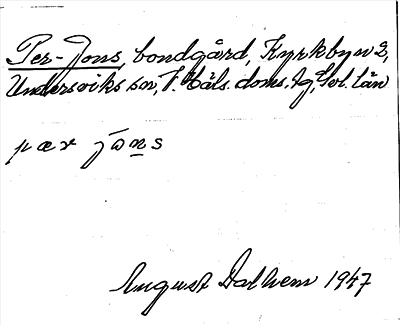 Per-Jons, bondgård, Kyrkbyn 2,
Undersviks sn, V. Häls. doms. tg, Gvl. län
pær jōns
August Dalhem 1947